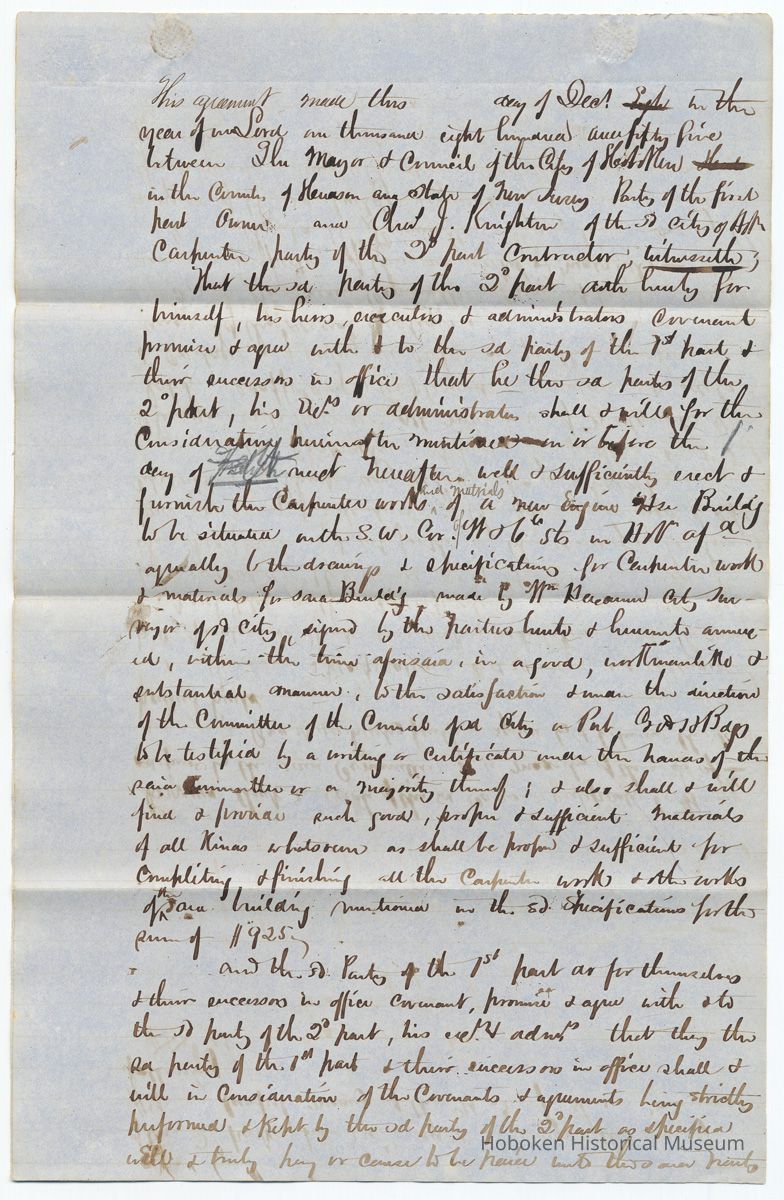 This agreement made this day of Dec. in the
year of our Lord one thousand eight hundred and fifty five
between The Mayor & Council of the City of Hoboken
in the County of Hudson and State of New Jersey Party of the first
part Owner and Chas J. Knighton of the sd City of Hbn
Carpenter party of the 2d part Contractor, witnesseth,
That the sd party of the 2d part doth hereby for
himself, his heirs, executors & administrators covenant
promise & agree with & to the sd party of the 1st part, &
their successors in office that he the sd party of the
2d part, his or administrators shall & will for the
Consideration hereinafter mentioned on or before the 1
day of next hereafter well & sufficiently erect &
furnish the Carpenter work and materials of a new Engine Hse Buildg
to be situated on the S.W. Cor. of & 6th sts in Hobn afsd
agreeably to the drawings & specifications for Carpenter work
& materials for said Buildg made by Wm City Sur-
veyor of sd City, signed by the parties hereto & hereunto annex-
ed, within the time aforesaid, in a good, workmanlike &
substantial manner, to the satisfaction & under the direction
of the Committee of the Council of sd City on
to be testified by a writing or certificate under the hands of the
said Committee or a majority thereof; & also shall & will
find & provide such good, proper & sufficient materials
of all kinds whatsoever as shall be proper & sufficient for
completing & finishing all the Carpenter work & oth works
of the said building mentioned in the sd Specifications for the
sum of 1925
and the sd Party of the 1st part do for themselves
& their successors in office covenant, promise & agree with & to
the sd party of the 2d part, his exe. & admrs that they the
sd party of the 1st part & their successors in office shall &
will in Consideration of the Covenants & agreements being strictly
performed & kept by the sd party of the 2d part as specified
will & truly pay or cause to be paid unto the said party
Hoboken Historical Museum